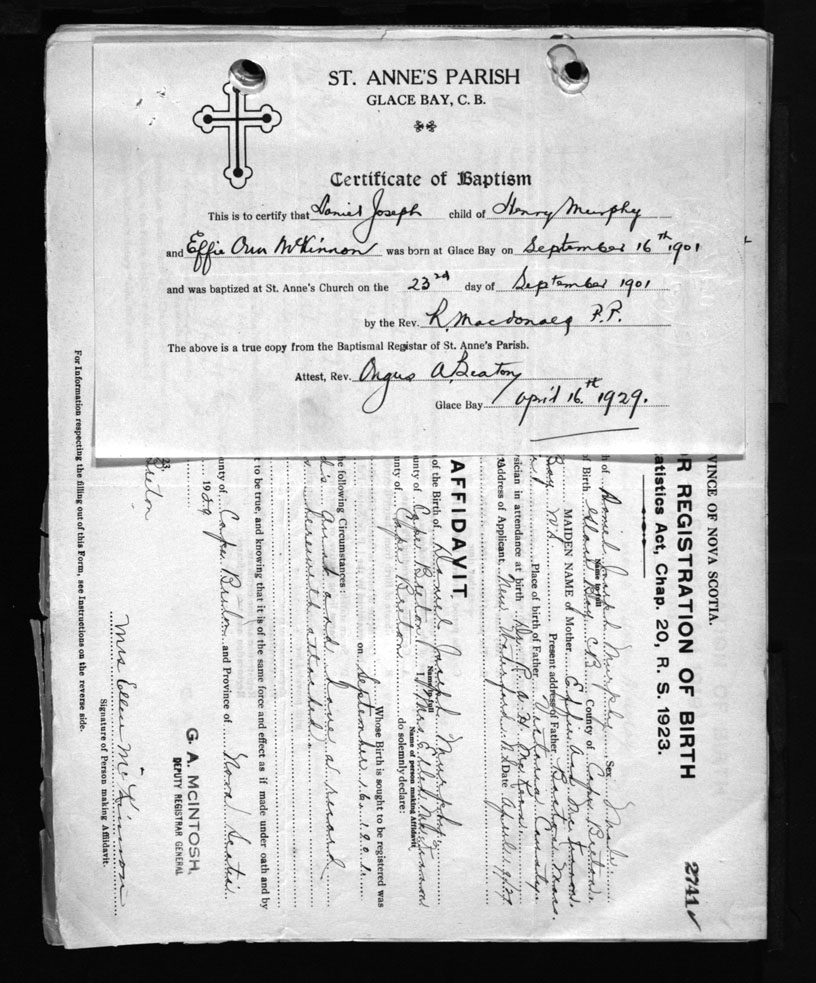 ST. ANNE'S PARISH
GLACE BAY, C. B.
Certificate of Baptism
This is to certify that Daniel Joseph child of Henry Murphy
and Effie Ann McKinnon was born at Glace Bay on September 16th 1901
and was baptized at St. Anne's Church on the 23rd day of September 1901
by the Rev. R. Macdonald P.P.
The above is a true copy from the Baptismal Registar of St. Anne's Parish.
Attest, Rev. Angus A. Beaton
Glace Bay April 16th 1929.
VINCE OF NOVA SCOTIA.
2741
R REGISTRATION OF BIRTH
atistics Act, Chap. 20, R. S. 1923.
h of Daniel Joseph Murphy Sex Male
Name in full
of Birth Glace Bay CB County of Cape Breton
MAIDEN NAME of Mother Effie Ann McKinnon
Present address of Father Boston Mass.
Place of birth of Father Victoria County
sician in attendance at birth Dr.
Address of Applicant New Waterford N.S. Date April 19/29
AFFIDAVIT.
of the Birth of Daniel Joseph Murphy
Name in full
unty of Cape Breton I, Mrs Ellen McKinnon
Name of person making Affidavit
unty of Cape Breton do solemnly declare:
Whose Birth is sought to be registered was
on September 16 1901
he following Circumstances:
and have a record
herewith attached.
t to be true, and knowing that it is of the same force and effect as if made under oath and by
unty of Cape Breton and Province of Nova Scotia
1929
G. A. MCINTOSH.
DEPUTY REGISTRAR GENERAL
23.
Breton
Mrs Ellen McKinnon
Signature of Person making Affidavit.
For Information respecting the filling out of this Form, see Instructions on the reverse side.